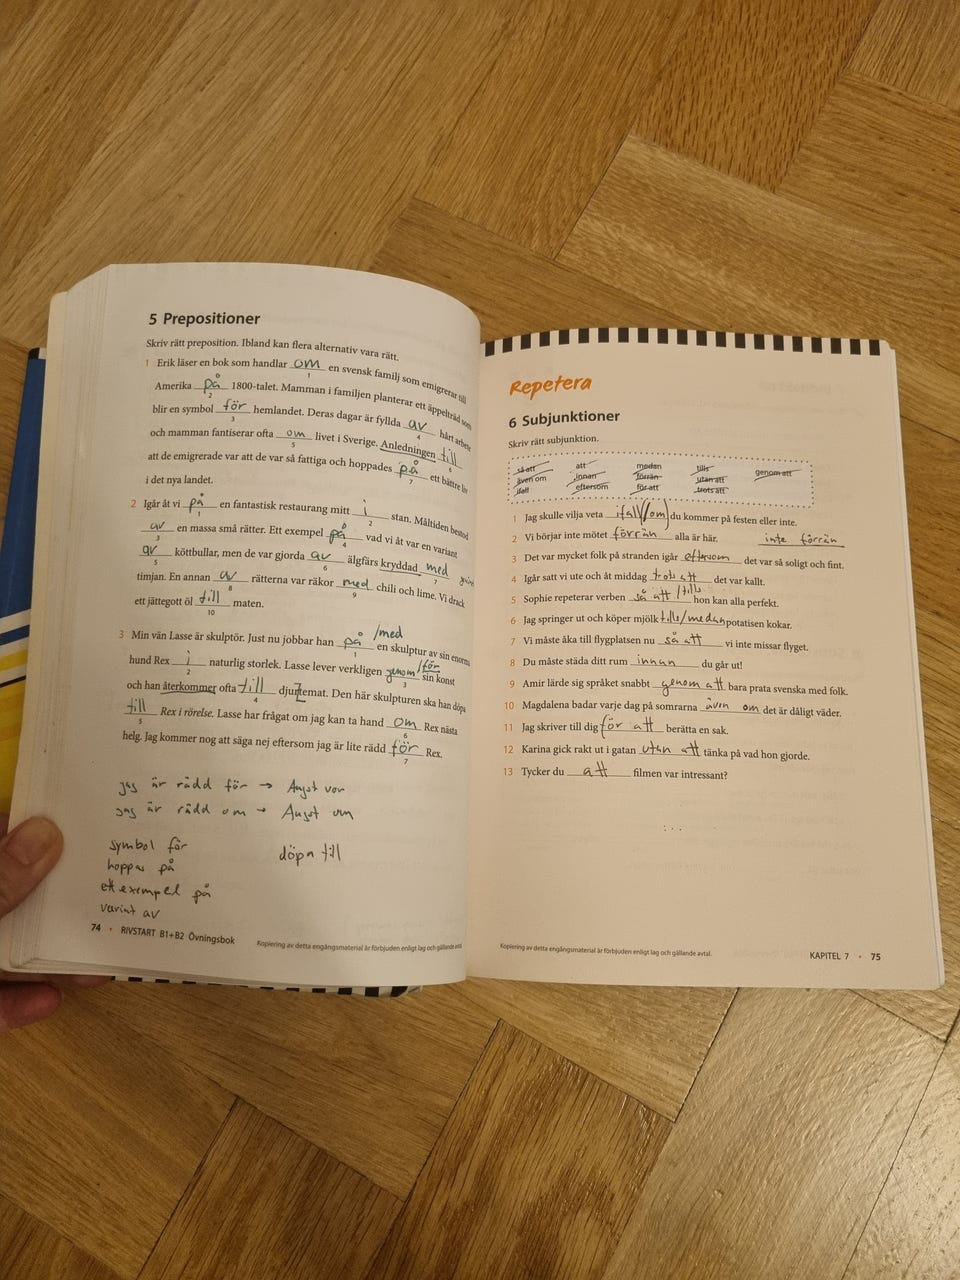 5 Prepositioner
Skriv rätt preposition. Ibland kan flera alternativ vara rätt.
1 Erik läser en bok som handlar om en svensk familj som emigrerar till
1
Amerika på 1800-talet. Mamman i familjen planterar ett äppelträd som
2
blir en symbol för hemlandet. Deras dagar är fyllda av hårt arbete
3 4
och mamman fantiserar ofta om livet i Sverige. Anledningen till
5 6
att de emigrerade var att de var så fattiga och hoppades på ett bättre liv
7
i det nya landet.
2 Igår åt vi på en fantastisk restaurang mitt i stan. Måltiden bestod
1 2
av en massa små rätter. Ett exempel på vad vi åt var en variant
3 4
av köttbullar, men de var gjorda av älgfärs kryddad med
5 6 7
timjan. En annan av rätterna var räkor med chili och lime. Vi drack
8 9
ett jättegott öl till maten.
10
3 Min vän Lasse är skulptör. Just nu jobbar han på /med en skulptur av sin enorma
1
hund Rex i naturlig storlek. Lasse lever verkligen genom/för sin konst
2 3
och han återkommer ofta till djurtemat. Den här skulpturen ska han döpa
4
till Rex i rörelse. Lasse har frågat om jag kan ta hand om Rex nästa
5 6
helg. Jag kommer nog att säga nej eftersom jag är lite rädd för Rex.
7
jag är rädd för → Angst vor
jag är rädd om → Angst um
symbol för
hoppas på
döpa till
ett exempel på
variant av
74 • RIVSTART B1+B2 Övningsbok
Kopiering av detta engångsmaterial är förbjuden enligt lag och gällande avtal.
Repetera
6 Subjunktioner
Skriv rätt subjunktion.
så att att medan tills genom att
även om innan förrän utan att
ifall eftersom för att trots att
1 Jag skulle vilja veta ifall/om du kommer på festen eller inte.
2 Vi börjar inte mötet förrän alla är här. inte förrän
3 Det var mycket folk på stranden igår eftersom det var så soligt och fint.
4 Igår satt vi ute och åt middag trots att det var kallt.
5 Sophie repeterar verben så att /tills hon kan alla perfekt.
6 Jag springer ut och köper mjölk tills/medan potatisen kokar.
7 Vi måste åka till flygplatsen nu så att vi inte missar flyget.
8 Du måste städa ditt rum innan du går ut!
9 Amir lärde sig språket snabbt genom att bara prata svenska med folk.
10 Magdalena badar varje dag på somrarna även om det är dåligt väder.
11 Jag skriver till dig för att berätta en sak.
12 Karina gick rakt ut i gatan utan att tänka på vad hon gjorde.
13 Tycker du att filmen var intressant?
Kopiering av detta engångsmaterial är förbjuden enligt lag och gällande avtal.
KAPITEL 7 • 75